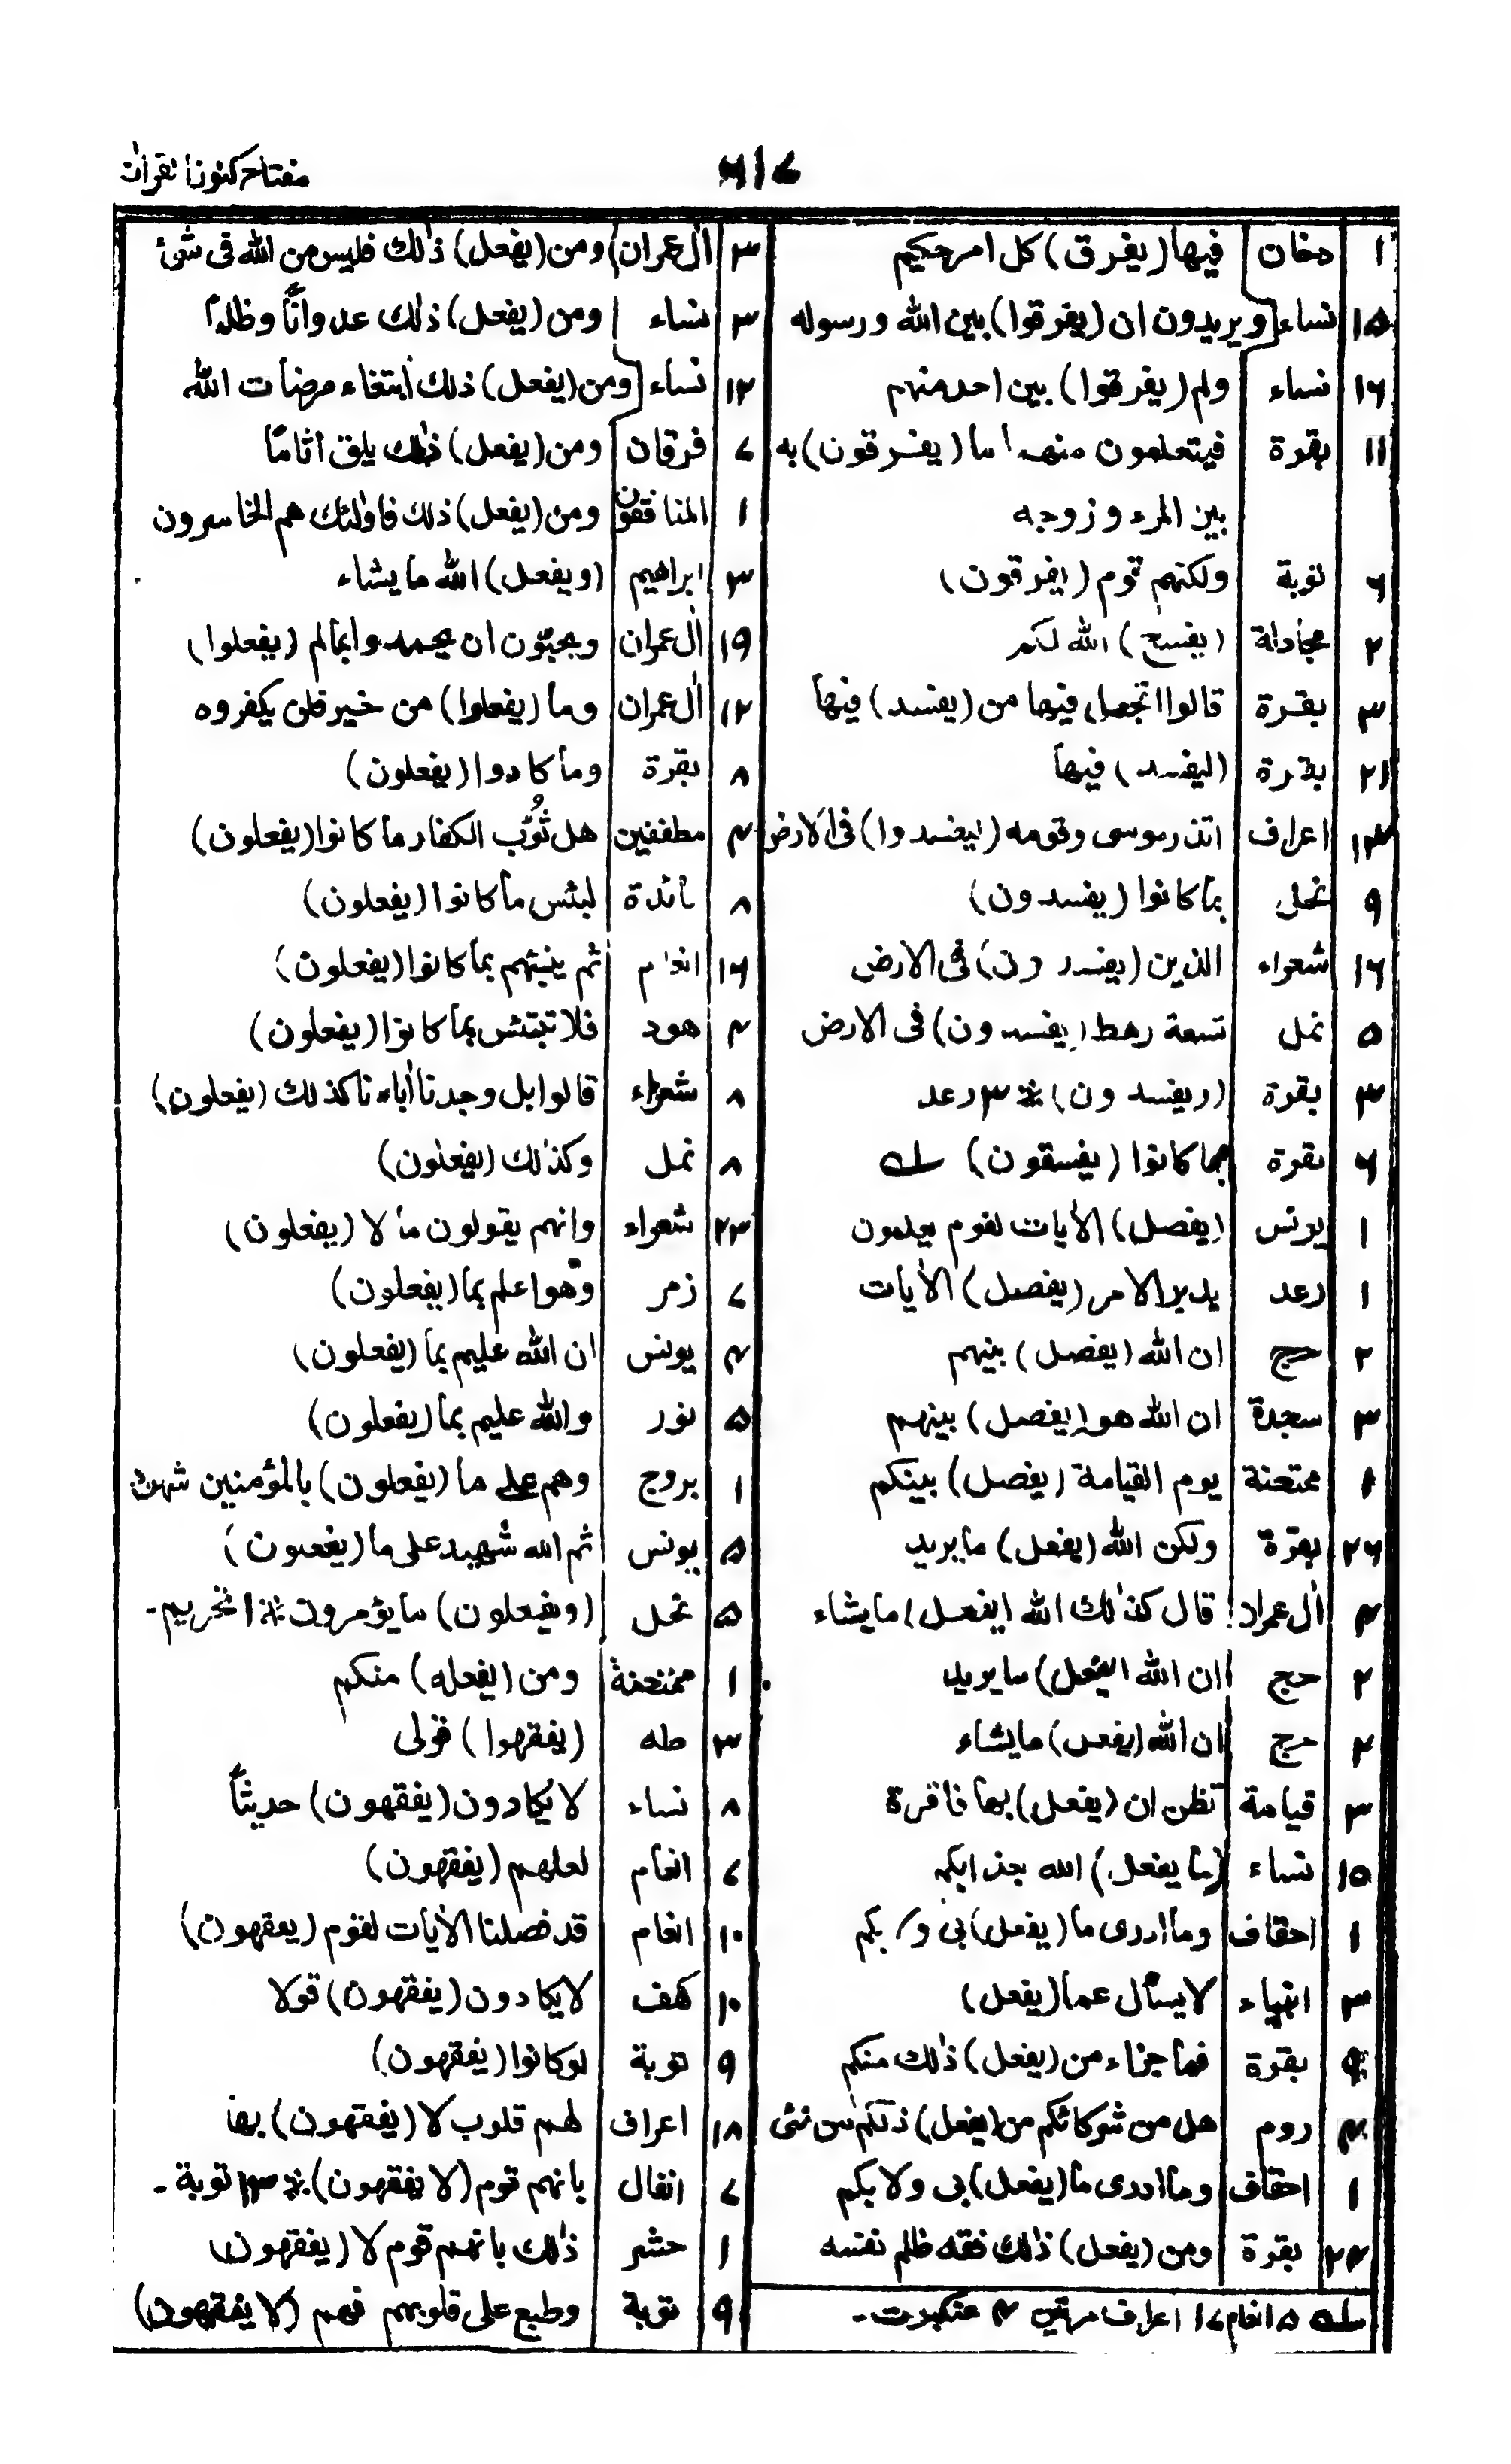 مفتاح کنوز القرآن
۶۱۷
۱ دخان فیها (یفرق) کل امر حکیم
۱۵ نساء ویریدون ان (یفرقوا) بین الله ورسوله
۱۶ نساء ولم (یفرقوا) بین احد منهم
۱۱ بقرة فیتعلمون منهما ما (یفرقون) به
بین المرء وزوجه
۶ توبة ولکنهم قوم (یفرقون)
۲ مجادلة (یفسح) الله لکم
۳ بقرة قالوا اتجعل فیها من (یفسد) فیها
۲۱ بقرة (لیفسد) فیها
۱۳ اعراف اتذر موسی وقومه (لیفسدوا) فی الارض
۹ نحل بما کانوا (یفسدون)
۱۶ شعراء الذین (یفسدون) فی الارض
۵ نمل تسعة رهط (یفسدون) فی الارض
۳ بقرة (ویفسدون) ۳ رعد
۶ بقرة بما کانوا (یفسقون) ـه
۱ یونس (یفصل) الأیات لقوم یعلمون
۱ رعد یدبر الامر (یفصل) الأیات
۲ حج ان الله (یفصل) بینهم
۳ سجدة ان الله هو (یفصل) بینهم
۱ ممتحنة یوم القیامة (یفصل) بینکم
۲۶ بقرة ولکن الله (یفعل) ما یرید
۴ اٰل عمران قال کذٰلك الله (یفعل) ما یشاء
۲ حج ان الله (یفعل) ما یرید
۲ حج ان الله (یفعل) ما یشاء
۳ قیامة تظن ان (یفعل) بها فاقرة
۱۵ نساء (ما یفعل) الله بعذابکم
۱ احقاف وما ادری ما (یفعل) بی و/ بکم
۳ انبیاء لا یسأل عما (یفعل)
۹ بقرة فما جزاء من (یفعل) ذٰلك منکم
۴ روم هل من شرکائکم من (یفعل) ذلکم من شئ
۱ احقاف وما ادری ما (یفعل) بی ولا بکم
۲۴ بقرة ومن (یفعل) ذٰلك فقد ظلم نفسه
ـه ۵ انعام ۱۷ اعراف مرتین ۴ عنکبوت۔
۳ اٰل عمران ومن (یفعل) ذٰلك فلیس من الله فی شئ
۳ نساء ومن (یفعل) ذٰلك عدواناً وظلماً
۱۲ نساء ومن (یفعل) ذلك ابتغاء مرضات الله
۷ فرقان ومن (یفعل) ذٰلك یلق اثاماً
۱ المنافقون ومن (یفعل) ذلك فاولٰئك هم الخاسرون
۳ ابراهیم (ویفعل) الله ما یشاء
۱۹ اٰل عمران ویحبّون ان یحمدوا بما لم (یفعلوا)
۱۲ اٰل عمران وما (یفعلوا) من خیر فلن یکفروه
۸ بقرة وما کادوا (یفعلون)
۴ مطففین هل ثُوّب الکفار ما کانوا (یفعلون)
۸ مائدة لبئس ما کانوا (یفعلون)
۱۶ انعام ثم ینبئهم بما کانوا (یفعلون)
۴ هود فلا تبتئس بما کانوا (یفعلون)
۸ شعراء قالوا بل وجدنا اٰباءنا کذلك (یفعلون)
۸ نمل وکذٰلك (یفعلون)
۲۳ شعراء وانهم یقولون ما لا (یفعلون)
۷ زمر وهو اعلم بما (یفعلون)
۴ یونس ان الله علیم بما (یفعلون)
۵ نور والله علیم بما (یفعلون)
۱ بروج وهم علی ما (یفعلون) بالمؤمنین شهود
۵ یونس ثم الله شهید علی ما (یفعلون)
۵ نحل (ویفعلون) ما یؤمرون ۱ تحریم۔
۱ ممتحنة ومن (یفعله) منکم
۳ طه (یفقهوا) قولی
۸ نساء لا یکادون (یفقهون) حدیثاً
۷ انعام لعلهم (یفقهون)
۱۰ انعام قد فصلنا الأیات لقوم (یفقهون)
۱۰ کهف لا یکادون (یفقهون) قولا
۹ توبة لو کانوا (یفقهون)
۱۸ اعراف لهم قلوب لا (یفقهون) بها
۷ انفال بانهم قوم (لا یفقهون) ۱۳ توبة۔
۱ حشر ذٰلك بانهم قوم لا (یفقهون)
۹ توبة وطبع علی قلوبهم فهم (لا یفقهون)